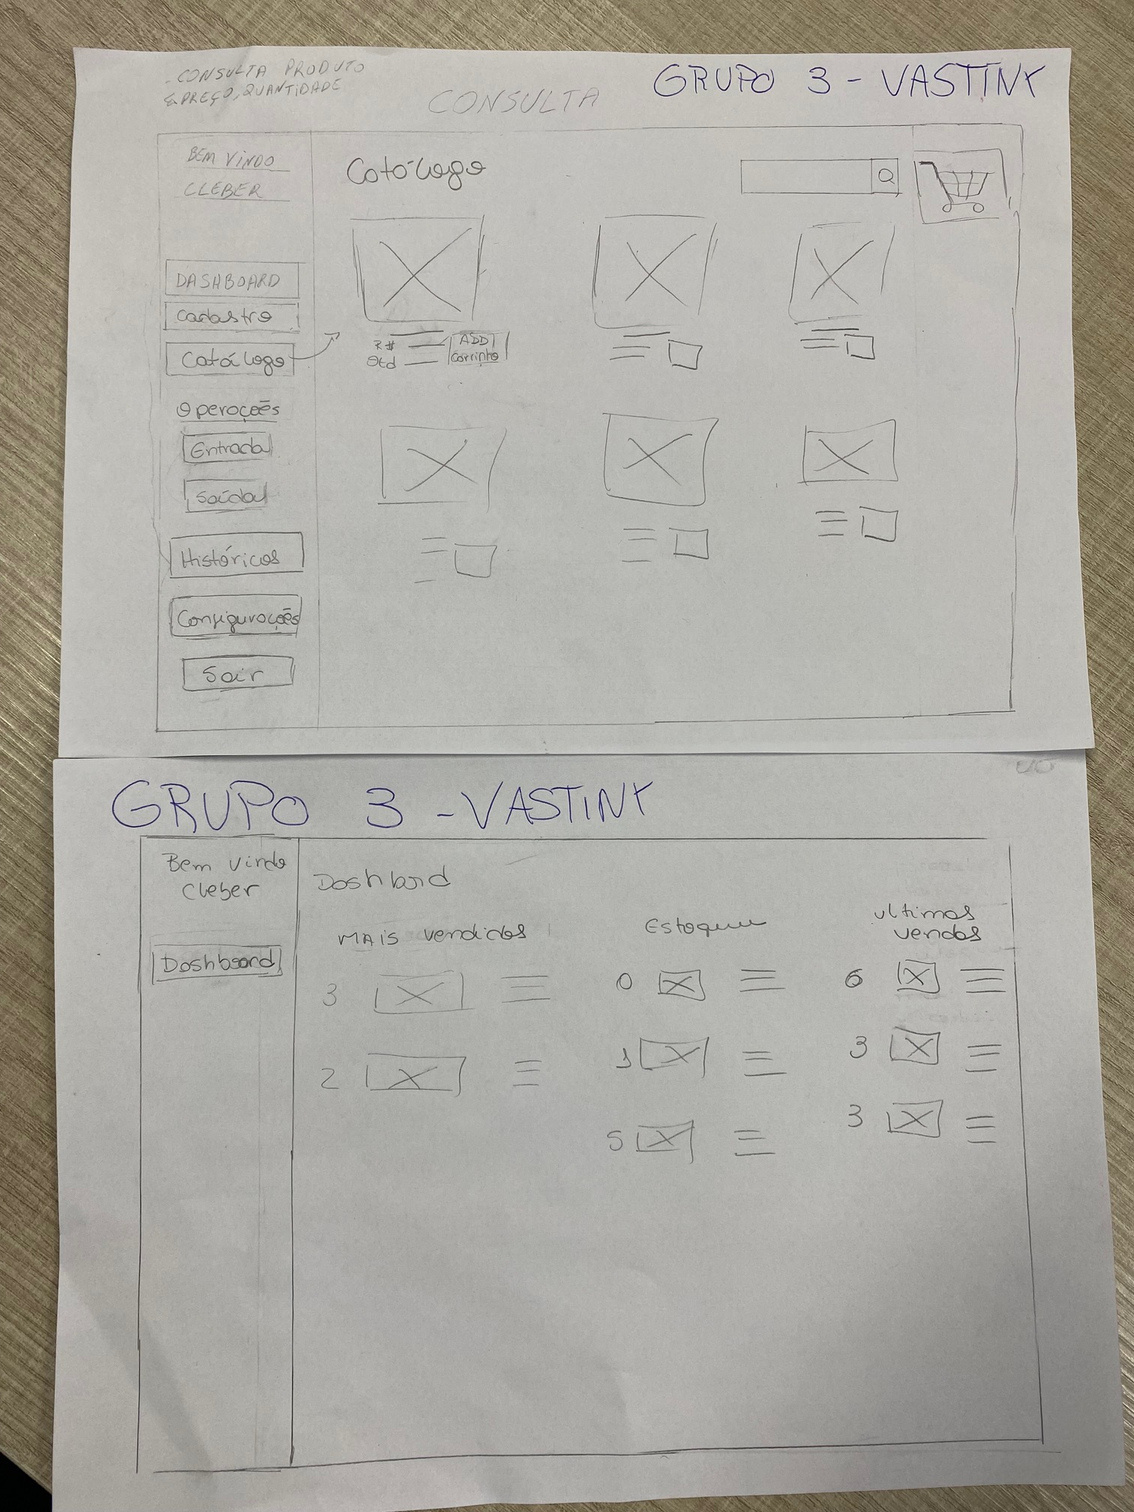 - CONSULTA PRODUTO
& PREÇO, QUANTIDADE
CONSULTA
GRUPO 3 - VASTINY
BEM VINDO
CLEBER
DASHBOARD
Cadastro
Catálogo
Operações
Entrada
Saída
Históricos
Configurações
Sair
Catálogo
R$
Qtd
ADD
Carrinho
GRUPO 3 - VASTINY
Bem vindo
Cleber
Dashboard
Dashbord
MAIS vendidos
3
2
Estoque
0
1
5
ultimas
vendas
6
3
3